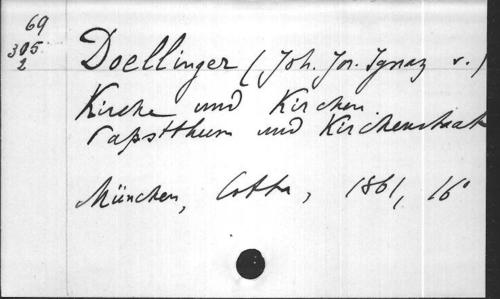 69
305
2
Doellinger (Joh. Jos. Ignaz v.)
Kirche und Kirchen
Papstthum und Kirchenstaat
München, Cotta, 1861, 16°